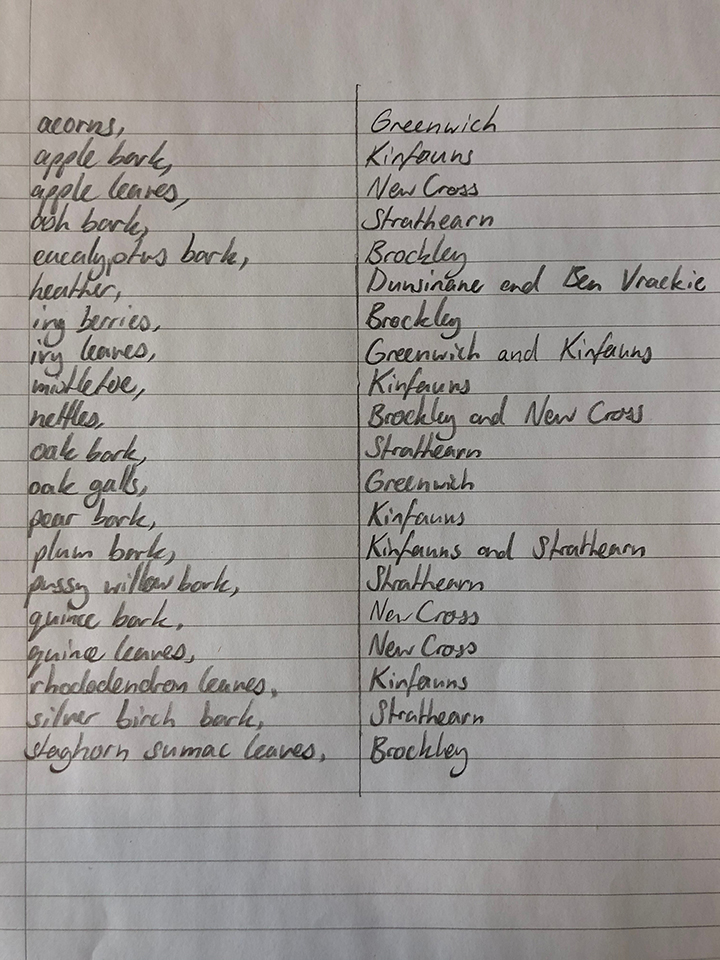 acorns, Greenwich
apple bark, Kinfauns
apple leaves, New Cross
ash bark, Strathearn
eucalyptus bark, Brockley
heather, Dunsinane and Ben Vrackie
ivy berries, Brockley
ivy leaves, Greenwich and Kinfauns
mistletoe, Kinfauns
nettles, Brockley and New Cross
oak bark, Strathearn
oak galls, Greenwich
pear bark, Kinfauns
plum bark, Kinfauns and Strathearn
pussy willow bark, Strathearn
quince bark, New Cross
quince leaves, New Cross
rhododendron leaves, Kinfauns
silver birch bark, Strathearn
staghorn sumac leaves, Brockley